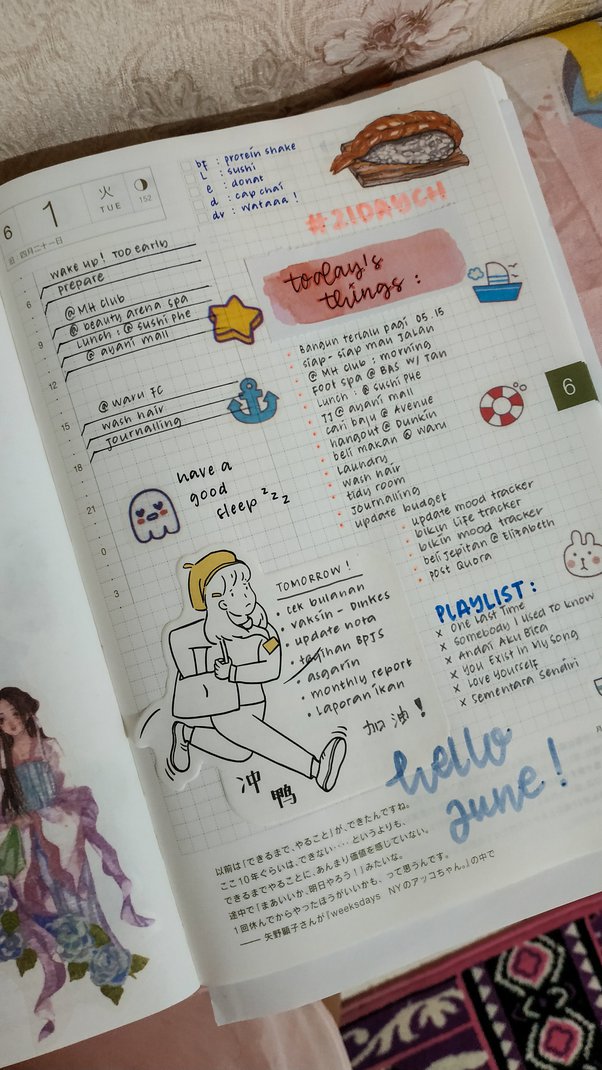 6
1
火
TUE
152
旧:四月二十一日
bf : protein shake
L : sushi
e : donat
d : cap chai
dr : wataaa !
#21DAYCH
wake up! Too early
prepare
@ MH club
@ beauty arena spa
Lunch : @ sushi phe
@ ayani mall
@ waru FC
wash hair
journalling
6
9
12
15
18
21
0
3
today's
things :
Bangun terlalu pagi 05.15
siap-siap mau jalan
@ MH club : morning
Foot spa @ BAS w/ Tan
Lunch : @ sushi PHE
JJ @ ayani mall
cari baju @ Avenue
hangout @ Dunkin
beli makan @ waru
Laundry
wash hair
tidy room
Journalling
update budget
update mood tracker
bikin life tracker
bikin mood tracker
beli jepitan @ Elizabeth
post Quora
6
have a
good
sleep zzz
TOMORROW !
• cek bulanan
• vaksin - Dinkes
• update nota
• tagihan BPJS
• asgarin
• monthly report
• Laporan ikan
加油!
冲鸭
PLAYLIST :
x One Last Time
x Somebody I Used to know
x Andai Aku Bisa
x You Exist in My Song
x Love Yourself
x Sementara Sendiri
hello
June!
以前は「できるまで、やること」が、できたんですね。
ここ10年ぐらいは、できない‥‥というよりも、
できるまでやることに、あんまり価値を感じていない。
途中で「まあいいか、明日やろう!」みたいな。
1回休んでからやったほうがいいかも、って思うんです。
── 矢野顕子さんが『weeksdays NYのアッコちゃん。』の中で